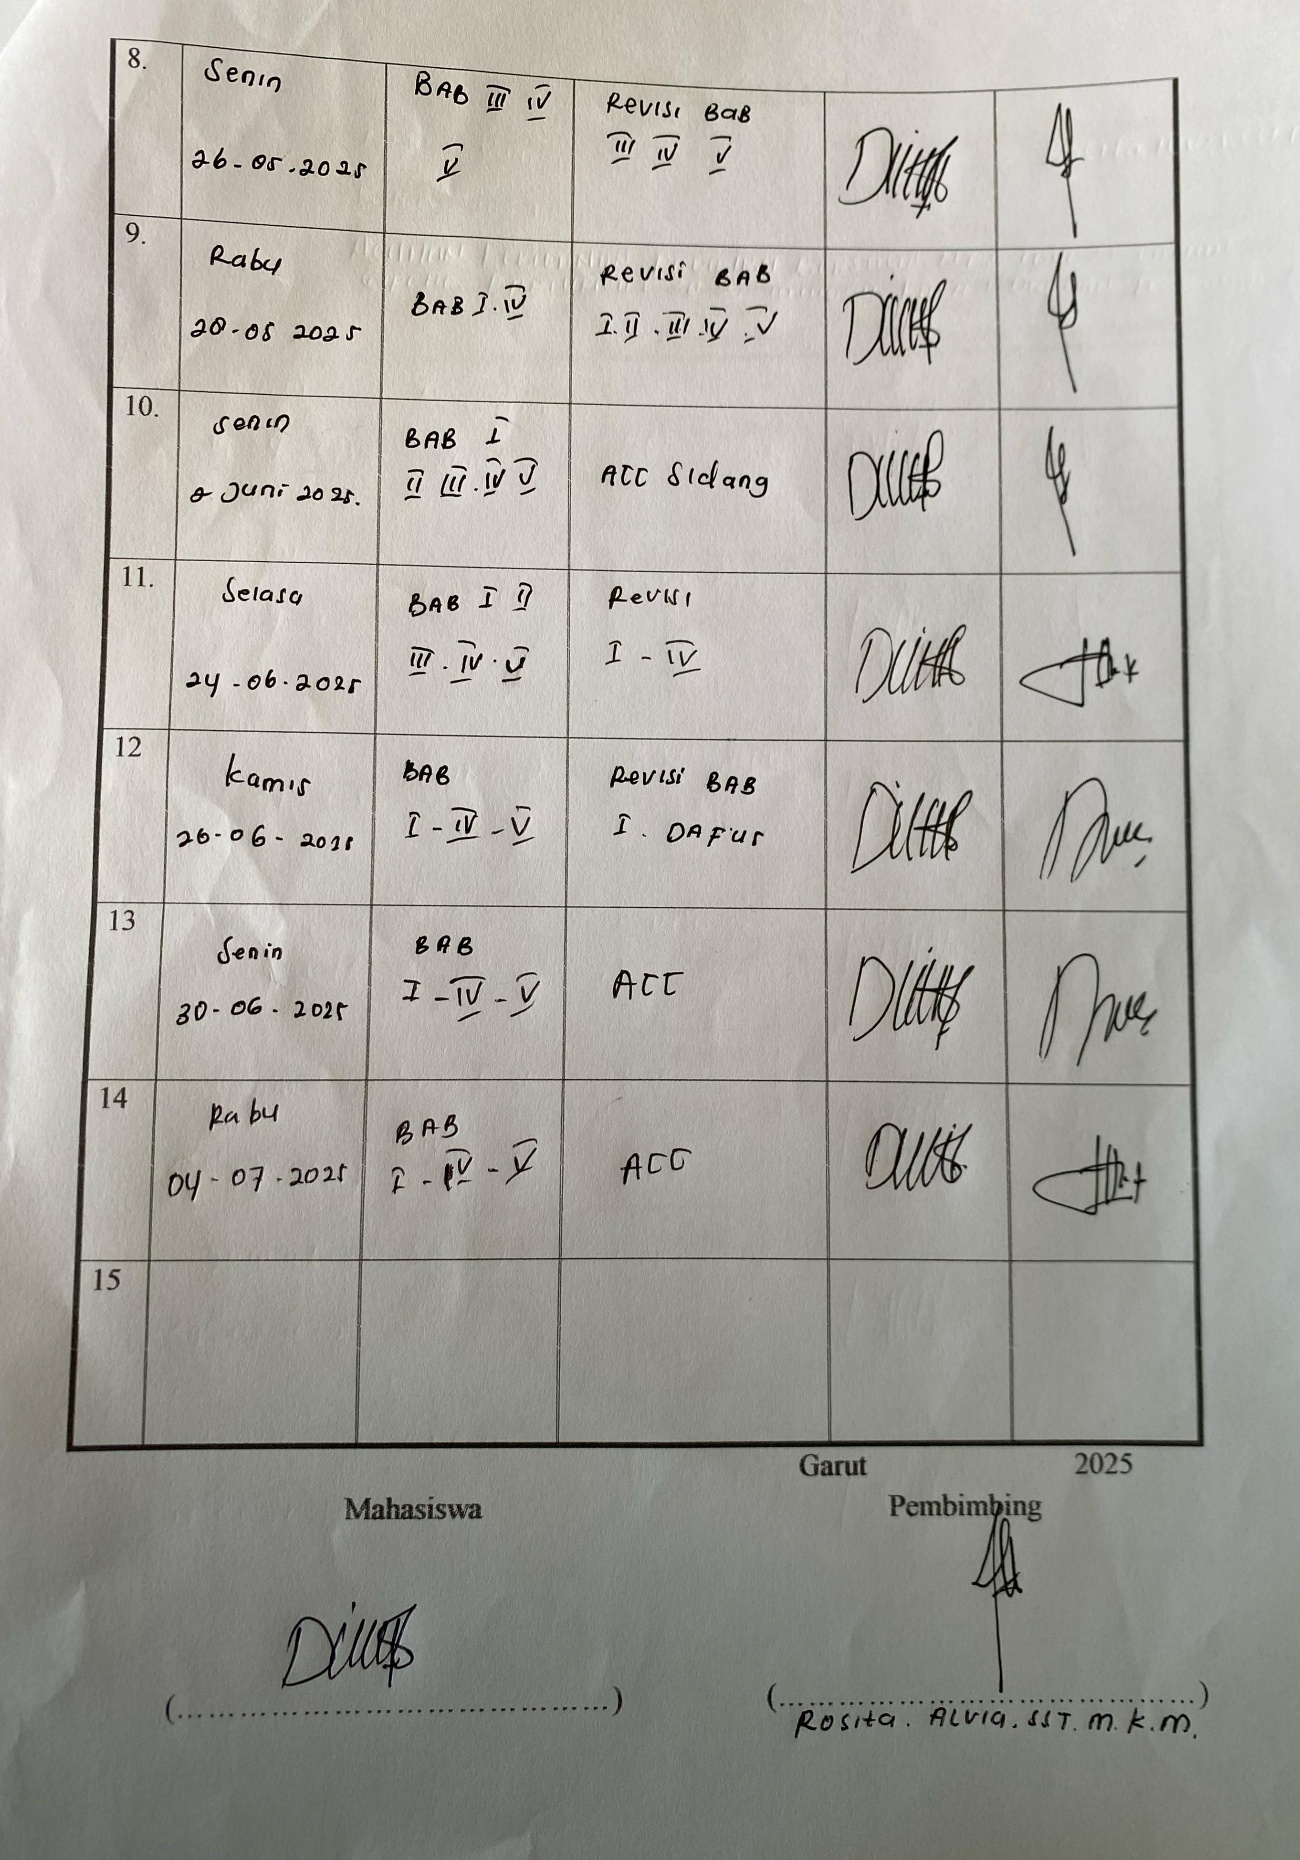 8.
Senin
26-05-2025
BAB III IV
V
Revisi BaB
III IV V
9.
Rabu
28-05 2025
BAB I.IV
Revisi BAB
I.II.III.IV.V
10.
Senin
Juni 2025.
BAB I
II III.IV V
ACC Sidang
11.
Selasa
24-06-2025
BAB I II
III.IV.V
Revisi
I - IV
12
Kamis
26-06-2025
BAB
I - IV - V
Revisi BAB
I. DAFUS
13
Senin
30-06-2025
BAB
I - IV - V
ACC
14
Rabu
04-07-2025
BAB
I - IV - V
ACC
15
Garut 2025
Mahasiswa Pembimbing
(....................................) (....................................)
Rosita. Alvia. SST. M.K.M.